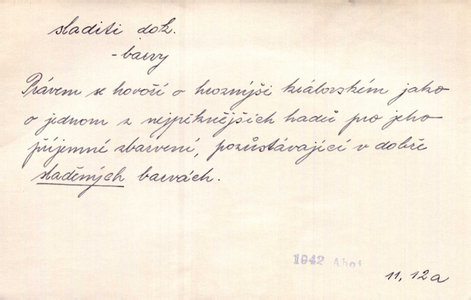 sladiti dok.
- barvy
Právem se hovoří o hroznýši královském jako
o jednom z nejpěknějších hadů pro jeho
příjemné zbarvení, pozůstávající v dobře
sladěných barvách.
1942 Ahoj
11, 12a